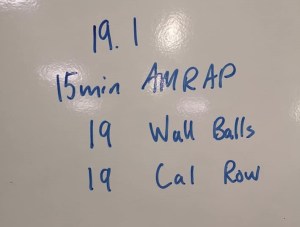 19.1
15min AMRAP
19 Wall Balls
19 Cal Row